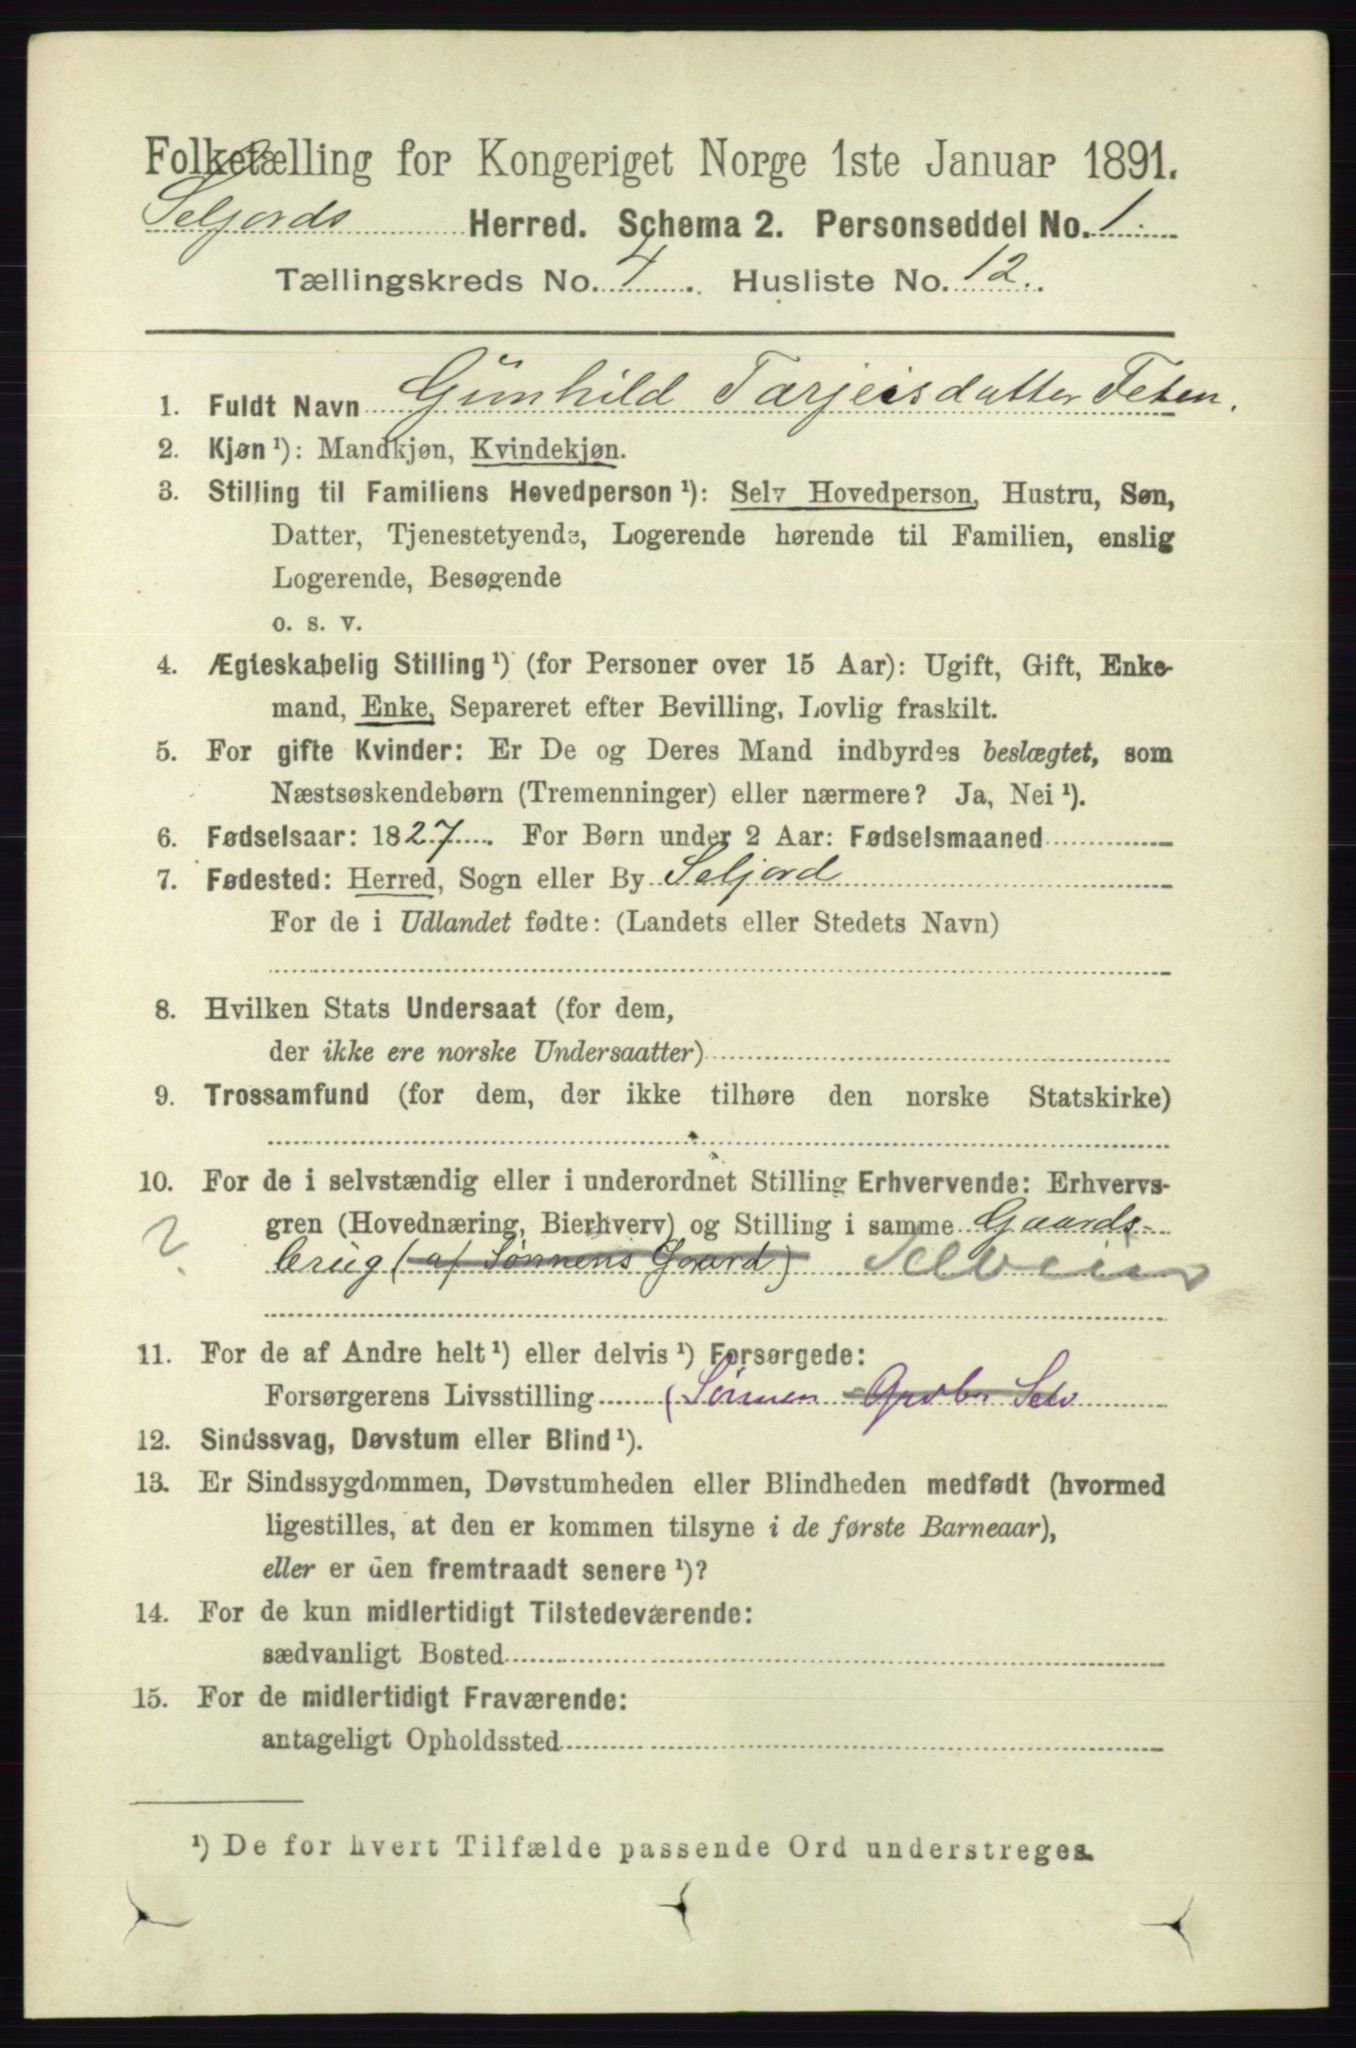 Folketælling for Kongeriget Norge 1ste Januar 1891.
Seljords Herred. Schema 2. Personseddel No. 1.
Tællingskreds No. 4. Husliste No. 12.
1. Fuldt Navn Gunhild Tarjeisdatter Teten.
2. Kjøn ¹): Mandkjøn, Kvindekjøn.
3. Stilling til Familiens Hovedperson ¹): Selv Hovedperson, Hustru, Søn,
Datter, Tjenestetyende, Logerende hørende til Familien, enslig
Logerende, Besøgende
o. s. v.
4. Ægteskabelig Stilling ¹) (for Personer over 15 Aar): Ugift, Gift, Enke-
mand, Enke, Separeret efter Bevilling, Lovlig fraskilt.
5. For gifte Kvinder: Er De og Deres Mand indbyrdes beslægtet, som
Næstsøskendebørn (Tremenninger) eller nærmere? Ja, Nei ¹).
6. Fødselsaar: 1827. For Børn under 2 Aar: Fødselsmaaned
7. Fødested: Herred, Sogn eller By Seljord
For de i Udlandet fødte: (Landets eller Stedets Navn)
8. Hvilken Stats Undersaat (for dem,
der ikke ere norske Undersaatter)
9. Trossamfund (for dem, der ikke tilhøre den norske Statskirke)
10. For de i selvstændig eller i underordnet Stilling Erhvervende: Erhvervs-
? gren (Hovednæring, Bierhverv) og Stilling i samme Gaards-
brug (af Sønnens Gaard) Selveier
11. For de af Andre helt ¹) eller delvis ¹) Forsørgede:
Forsørgerens Livsstilling (Sønnen Gaardbr Selv
12. Sindssvag, Døvstum eller Blind ¹).
13. Er Sindssygdommen, Døvstumheden eller Blindheden medfødt (hvormed
ligestilles, at den er kommen tilsyne i de første Barneaar),
eller er den fremtraadt senere ¹)?
14. For de kun midlertidigt Tilstedeværende:
sædvanligt Bosted
15. For de midlertidigt Fraværende:
antageligt Opholdssted
¹) De for hvert Tilfælde passende Ord understreges.